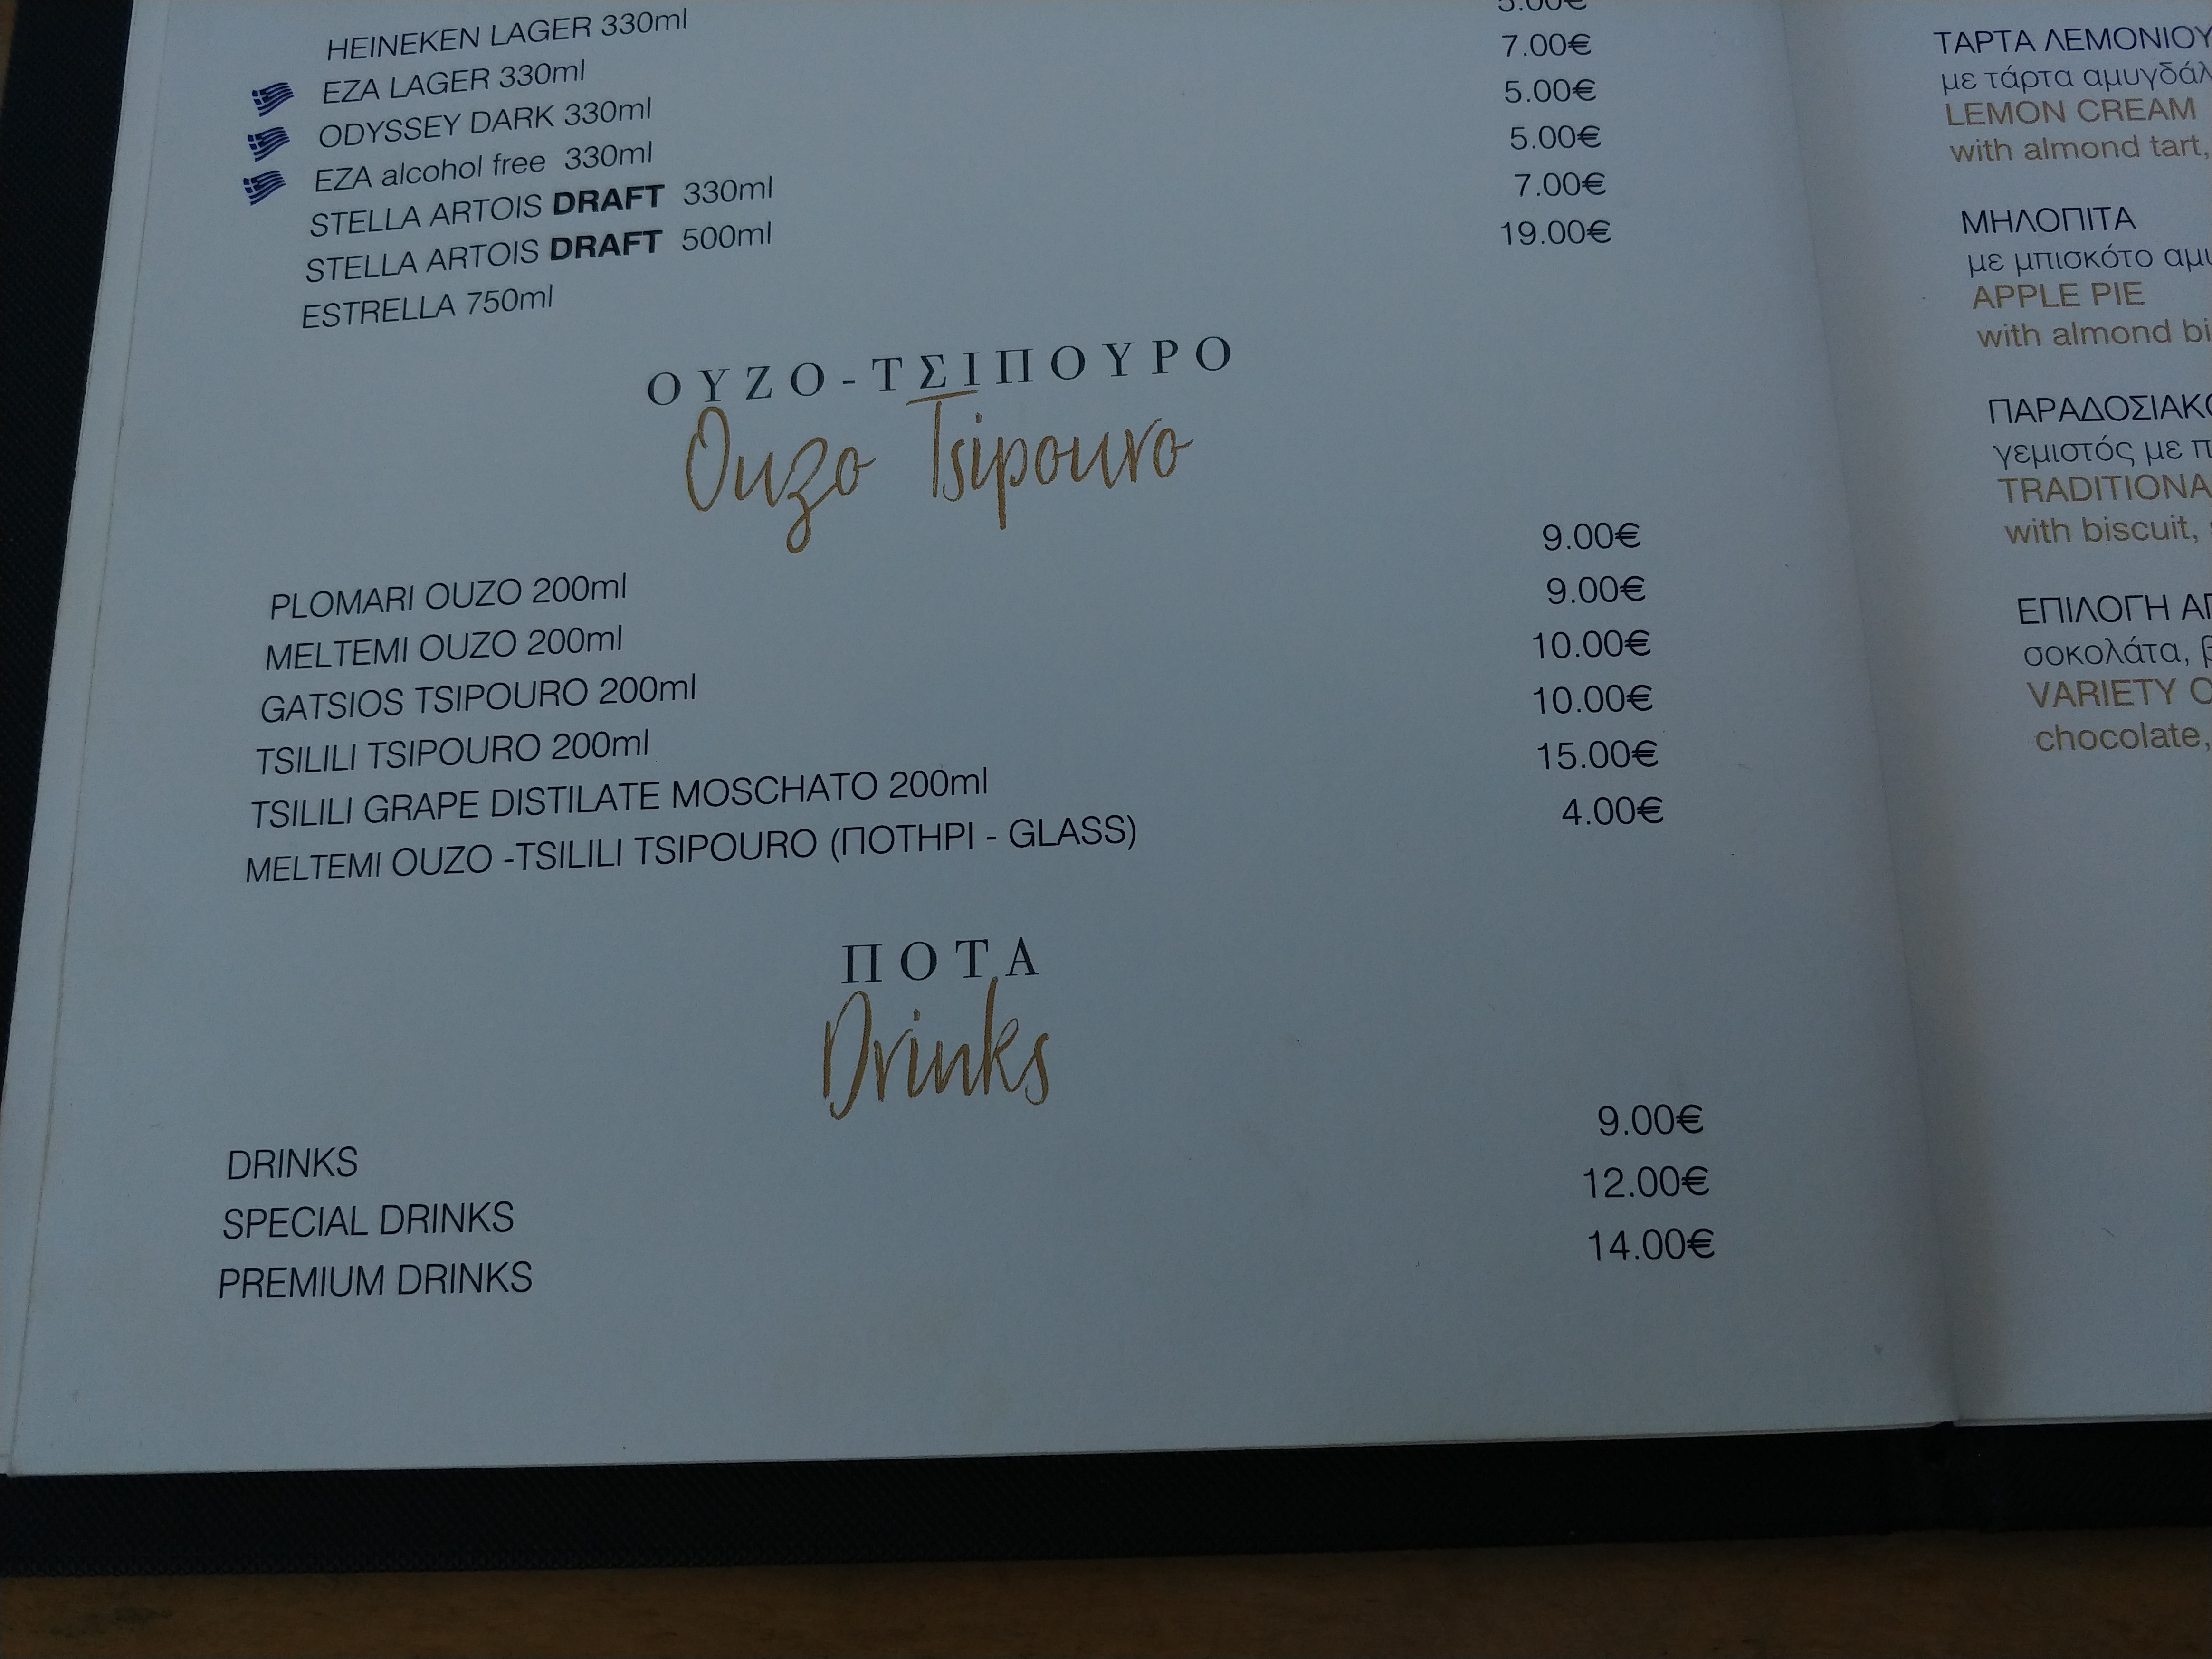 HEINEKEN LAGER 330ml
EZA LAGER 330ml 5.00€
ODYSSEY DARK 330ml 7.00€
EZA alcohol free 330ml 5.00€
STELLA ARTOIS DRAFT 330ml 5.00€
STELLA ARTOIS DRAFT 500ml 7.00€
ESTRELLA 750ml 19.00€
ΟΥΖΟ-ΤΣΙΠΟΥΡΟ
Ouzo Tsipouro
PLOMARI OUZO 200ml 9.00€
MELTEMI OUZO 200ml 9.00€
GATSIOS TSIPOURO 200ml 10.00€
TSILILI TSIPOURO 200ml 10.00€
TSILILI GRAPE DISTILATE MOSCHATO 200ml 15.00€
MELTEMI OUZO -TSILILI TSIPOURO (ΠΟΤΗΡΙ - GLASS) 4.00€
ΠΟΤΑ
Drinks
DRINKS 9.00€
SPECIAL DRINKS 12.00€
PREMIUM DRINKS 14.00€
ΤΑΡΤΑ ΛΕΜΟΝΙΟΥ
με τάρτα
LEMON CREAM
with almond tart,
ΜΗΛΟΠΙΤΑ
με μπισκότο
APPLE PIE
with almond
γεμιστός με
with biscuit,
ΕΠΙΛΟΓΗ
σοκολάτα,
VARIETY
chocolate,